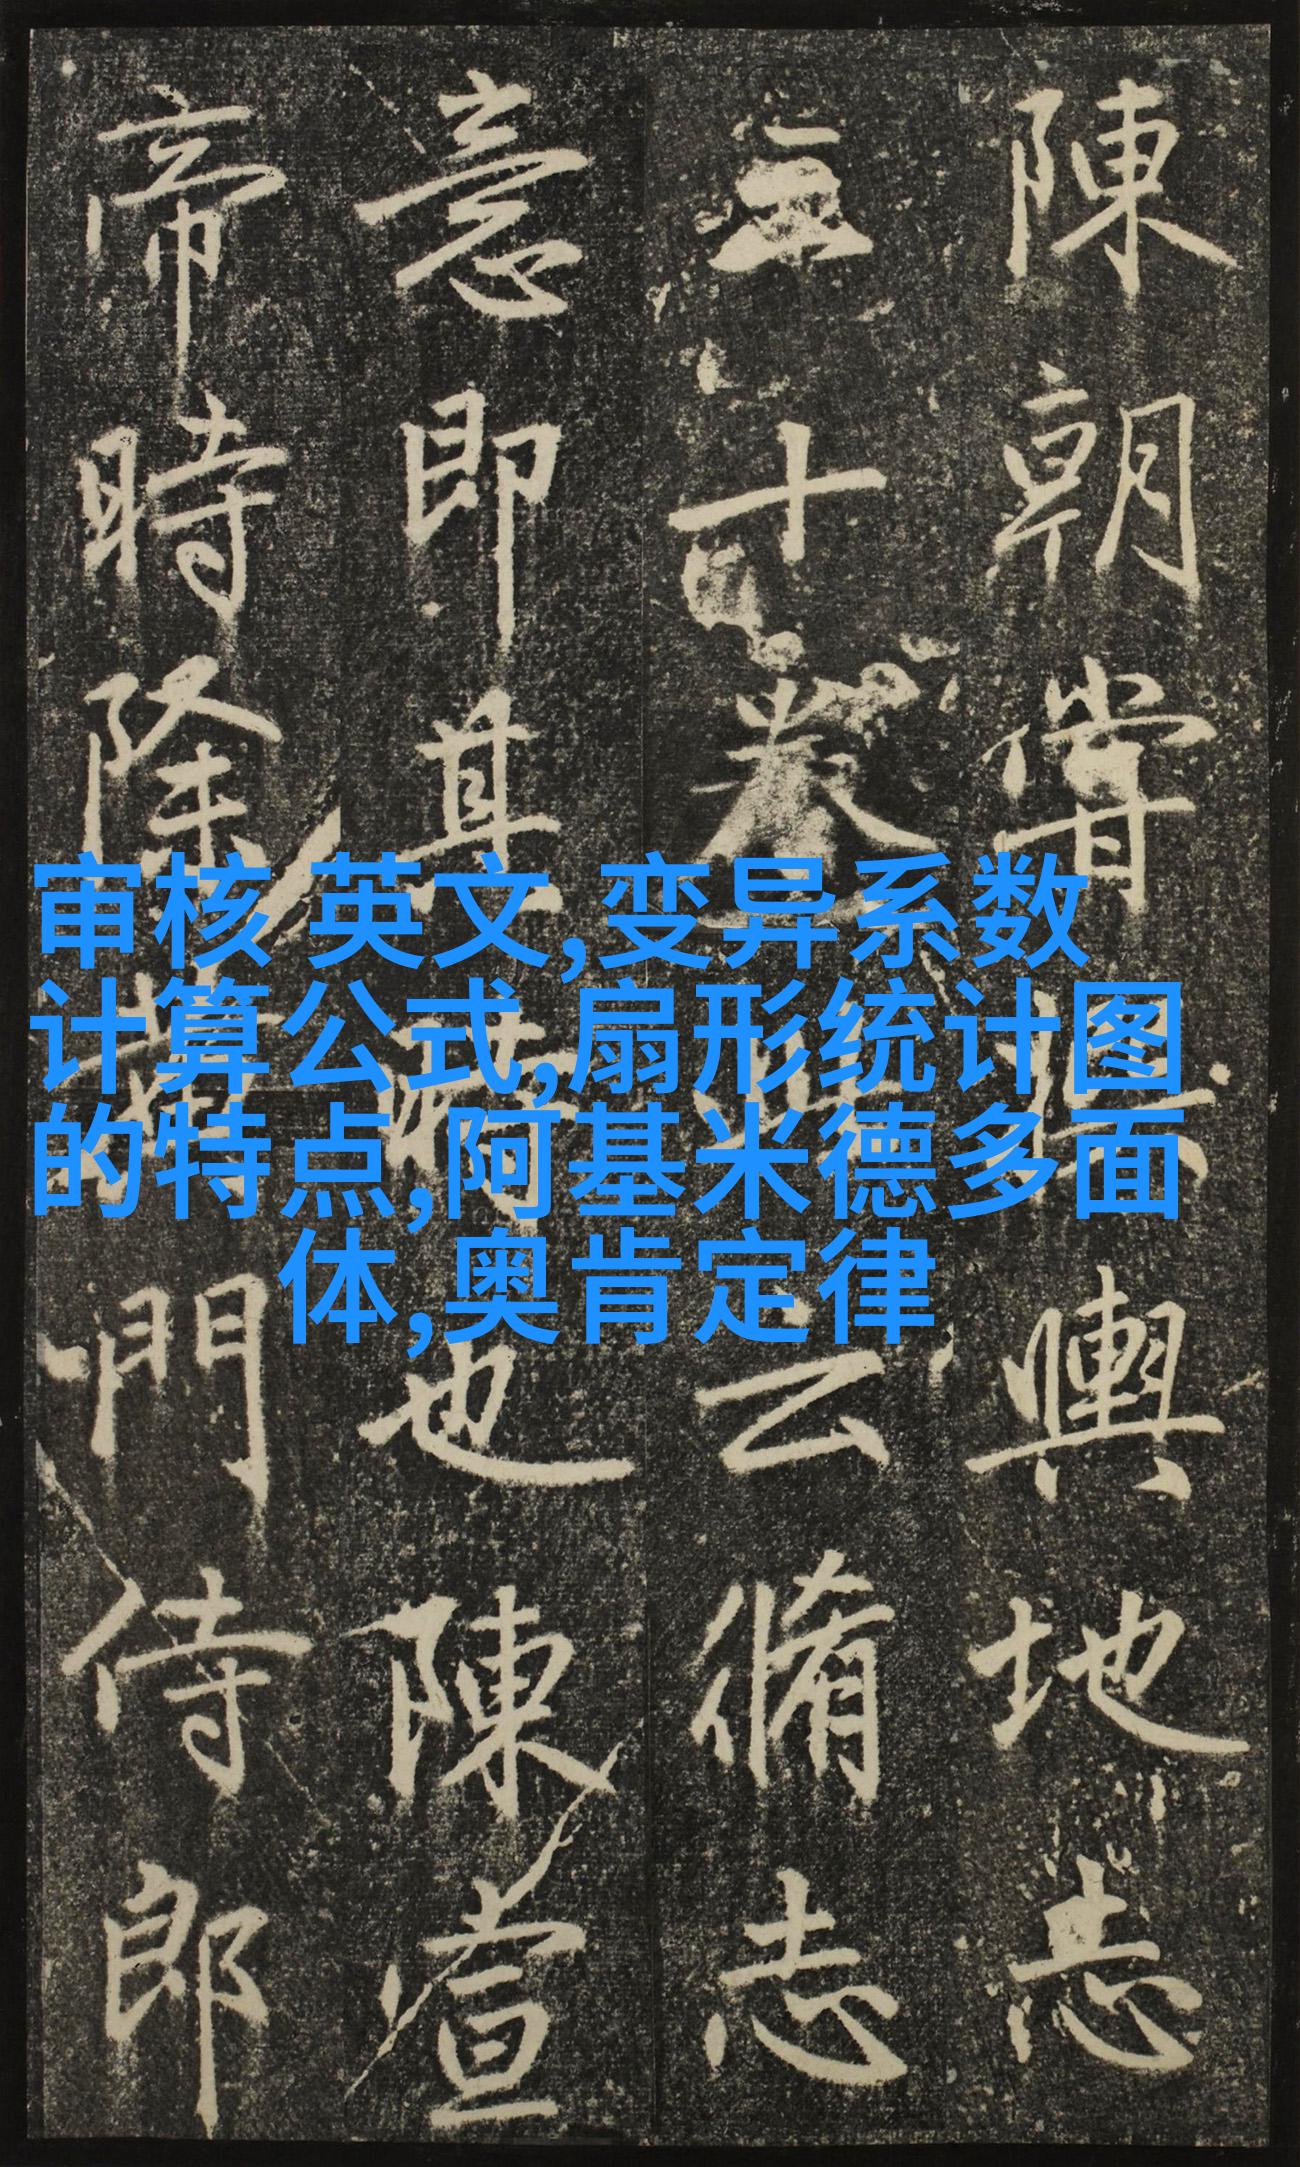 陳朝嘗撰輿地志
三十卷
云脩志
意即其
也陳宣
帝時除黃門侍郎
审核 英文,变异系数
计算公式,扇形统计图
的特点,阿基米德多面
体,奥肯定律